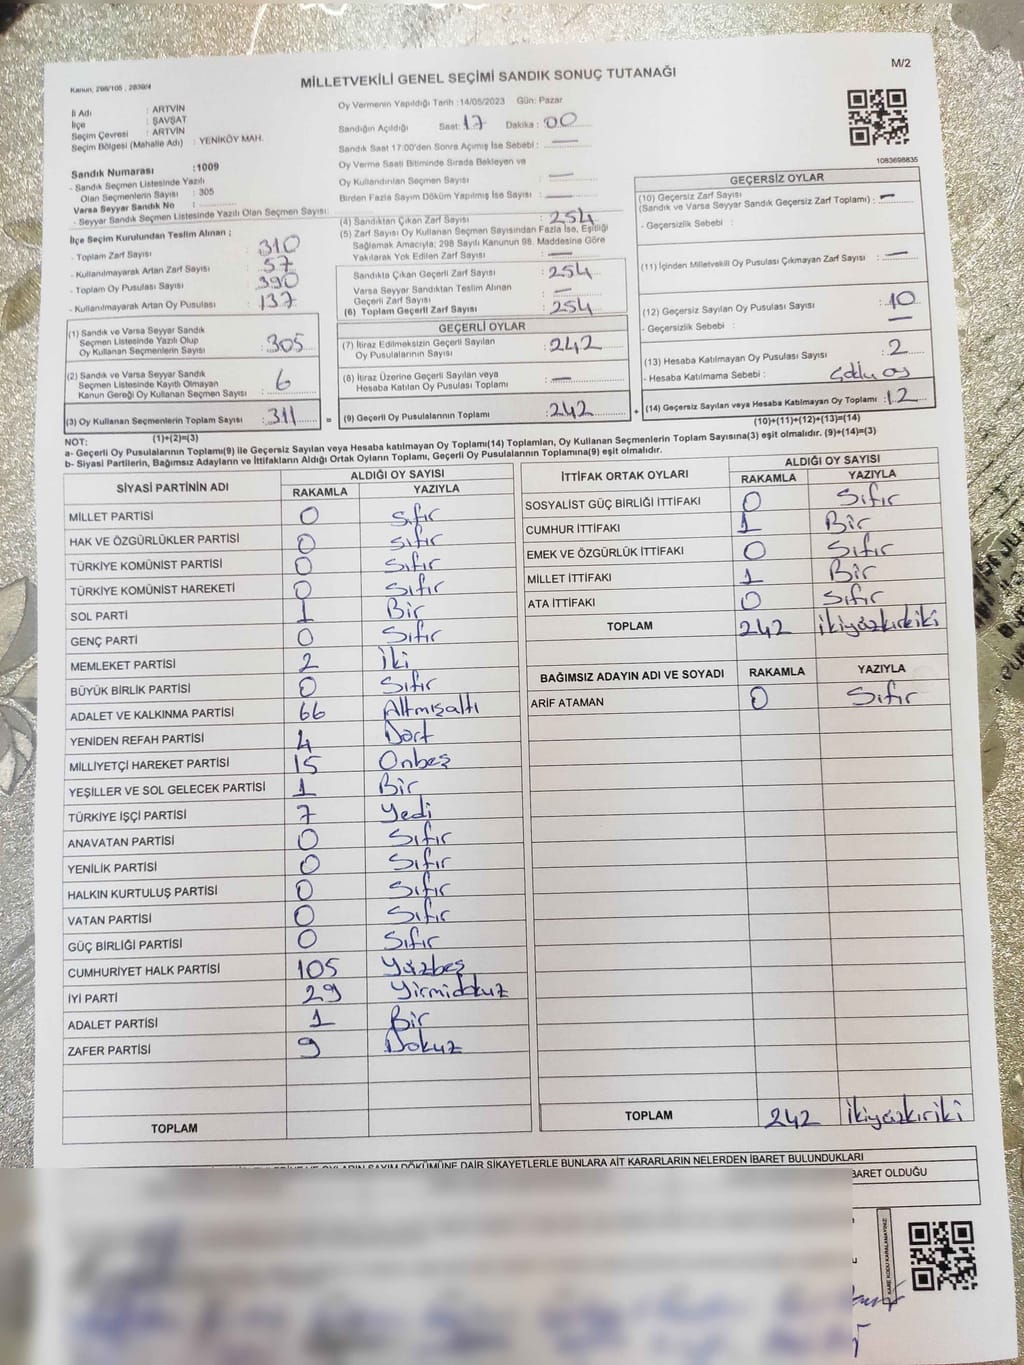 M/2
Kanun, 298/105 , 2839/4
MİLLETVEKİLİ GENEL SEÇİMİ SANDIK SONUÇ TUTANAĞI
İli Adı : ARTVİN
İlçe : ŞAVŞAT
Seçim Çevresi : ARTVİN
Seçim Bölgesi (Mahalle Adı) : YENİKÖY MAH.
Sandık Numarası :1009
- Sandık Seçmen Listesinde Yazılı
Olan Seçmenlerin Sayısı : 305
Varsa Seyyar Sandık No :
- Seyyar Sandık Seçmen Listesinde Yazılı Olan Seçmen Sayısı:
İlçe Seçim Kurulundan Teslim Alınan ;
- Toplam Zarf Sayısı : 310
- Kullanılmayarak Artan Zarf Sayısı : 57
- Toplam Oy Pusulası Sayısı : 390
- Kullanılmayarak Artan Oy Pusulası : 137
(1) Sandık ve Varsa Seyyar Sandık
Seçmen Listesinde Yazılı Olup
Oy Kullanan Seçmenlerin Sayısı : 305
(2) Sandık ve Varsa Seyyar Sandık
Seçmen Listesinde Kayıtlı Olmayan
Kanun Gereği Oy Kullanan Seçmen Sayısı : 6
(3) Oy Kullanan Seçmenlerin Toplam Sayısı : 311 =
(1)+(2)=(3)
Oy Vermenin Yapıldığı Tarih :14/05/2023 Gün: Pazar
Sandığın Açıldığı Saat: 17 Dakika : 00
Sandık Saat 17:00'den Sonra Açımış İse Sebebi : —
Oy Verme Saati Bitiminde Sırada Bekleyen ve
Oy Kullandırılan Seçmen Sayısı : —
Birden Fazla Sayım Döküm Yapılmış İse Sayısı : —
(4) Sandıktan Çıkan Zarf Sayısı : 254
(5) Zarf Sayısı Oy Kullanan Seçmen Sayısından Fazla İse, Eşitliği
Sağlamak Amacıyla; 298 Sayılı Kanunun 98. Maddesine Göre
Yakılarak Yok Edilen Zarf Sayısı : —
Sandıkta Çıkan Geçerli Zarf Sayısı : 254
Varsa Seyyar Sandıktan Teslim Alınan
Geçerli Zarf Sayısı : —
(6) Toplam Geçerli Zarf Sayısı : 254
GEÇERLİ OYLAR
(7) İtiraz Edilmeksizin Geçerli Sayılan
Oy Pusulalarının Sayısı : 242
(8) İtiraz Üzerine Geçerli Sayılan veya
Hesaba Katılan Oy Pusulası Toplamı : —
(9) Geçerli Oy Pusulalarının Toplamı : 242 +
1083698835
GEÇERSİZ OYLAR
(10) Geçersiz Zarf Sayısı
(Sandık ve Varsa Seyyar Sandık Geçersiz Zarf Toplamı) : —
- Geçersizlik Sebebi :
(11) İçinden Milletvekili Oy Pusulası Çıkmayan Zarf Sayısı : —
(12) Geçersiz Sayılan Oy Pusulası Sayısı : 10
- Geçersizlik Sebebi : —
(13) Hesaba Katılmayan Oy Pusulası Sayısı : 2
- Hesaba Katılmama Sebebi : Çoklu oy
(14) Geçersiz Sayılan veya Hesaba Katılmayan Oy Toplamı : 12
(10)+(11)+(12)+(13)=(14)
NOT:
a- Geçerli Oy Pusulalarının Toplamı(9) ile Geçersiz Sayılan veya Hesaba katılmayan Oy Toplamı(14) Toplamları, Oy Kullanan Seçmenlerin Toplam Sayısına(3) eşit olmalıdır. (9)+(14)=(3)
b- Siyasi Partilerin, Bağımsız Adayların ve İttifakların Aldığı Ortak Oyların Toplamı, Geçerli Oy Pusulalarının Toplamına(9) eşit olmalıdır.
SİYASİ PARTİNİN ADI ALDIĞI OY SAYISI
RAKAMLA YAZIYLA
MİLLET PARTİSİ 0 Sıfır
HAK VE ÖZGÜRLÜKLER PARTİSİ 0 Sıfır
TÜRKİYE KOMÜNİST PARTİSİ 0 Sıfır
TÜRKİYE KOMÜNİST HAREKETİ 0 Sıfır
SOL PARTİ 1 Bir
GENÇ PARTİ 0 Sıfır
MEMLEKET PARTİSİ 2 İki
BÜYÜK BİRLİK PARTİSİ 0 Sıfır
ADALET VE KALKINMA PARTİSİ 66 Altmışaltı
YENİDEN REFAH PARTİSİ 4 Dört
MİLLİYETÇİ HAREKET PARTİSİ 15 Onbeş
YEŞİLLER VE SOL GELECEK PARTİSİ 1 Bir
TÜRKİYE İŞÇİ PARTİSİ 7 Yedi
ANAVATAN PARTİSİ 0 Sıfır
YENİLİK PARTİSİ 0 Sıfır
HALKIN KURTULUŞ PARTİSİ 0 Sıfır
VATAN PARTİSİ 0 Sıfır
GÜÇ BİRLİĞİ PARTİSİ 0 Sıfır
CUMHURİYET HALK PARTİSİ 105 Yüzbeş
İYİ PARTİ 29 Yirmidokuz
ADALET PARTİSİ 1 Bir
ZAFER PARTİSİ 9 Dokuz
TOPLAM
İTTİFAK ORTAK OYLARI ALDIĞI OY SAYISI
RAKAMLA YAZIYLA
SOSYALİST GÜÇ BİRLİĞİ İTTİFAKI 0 Sıfır
CUMHUR İTTİFAKI 1 Bir
EMEK VE ÖZGÜRLÜK İTTİFAKI 0 Sıfır
MİLLET İTTİFAKI 1 Bir
ATA İTTİFAKI 0 Sıfır
TOPLAM 242 ikiyüzkırkiki
BAĞIMSIZ ADAYIN ADI VE SOYADI RAKAMLA YAZIYLA
ARİF ATAMAN 0 Sıfır
TOPLAM 242 ikiyüzkırıki
DÖKÜMÜNE DAİR ŞİKAYETLERLE BUNLARA AİT KARARLARIN NELERDEN İBARET BULUNDUKLARI
BARET OLDUĞU
KARE KODU KARALAMAYINIZ